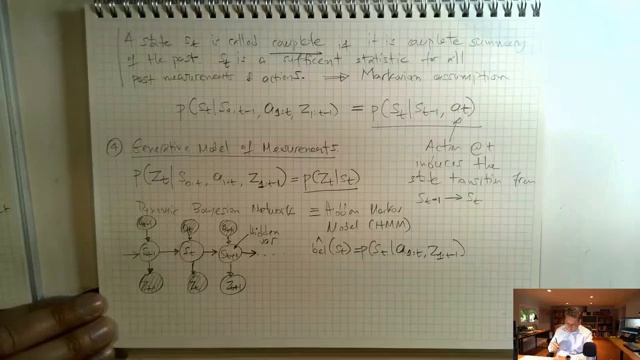 A state St is called complete if it is complete summary
of the past St is a sufficent statistic for all
past measurements & actions. ⟹ Markovian assumption
p(St|S0:t-1, a1:t, Z1:t-1) = p(St|St-1, at)
Action @ t
induces the
state transition from
St-1 → St
④ Generative Model of Measurements
p(Zt|S0:t, a1:t, Z1:t-1) = p(Zt|St)
Dynamic Bayesian Network ≡ Hidden Markov
Model (HMM)
at-1 at at+1 hidden
var
→ St-1 → St → St+1 → ...
Zt-1 Zt Zt+1
bel(St) = p(St|a1:t, Z1:t-1)